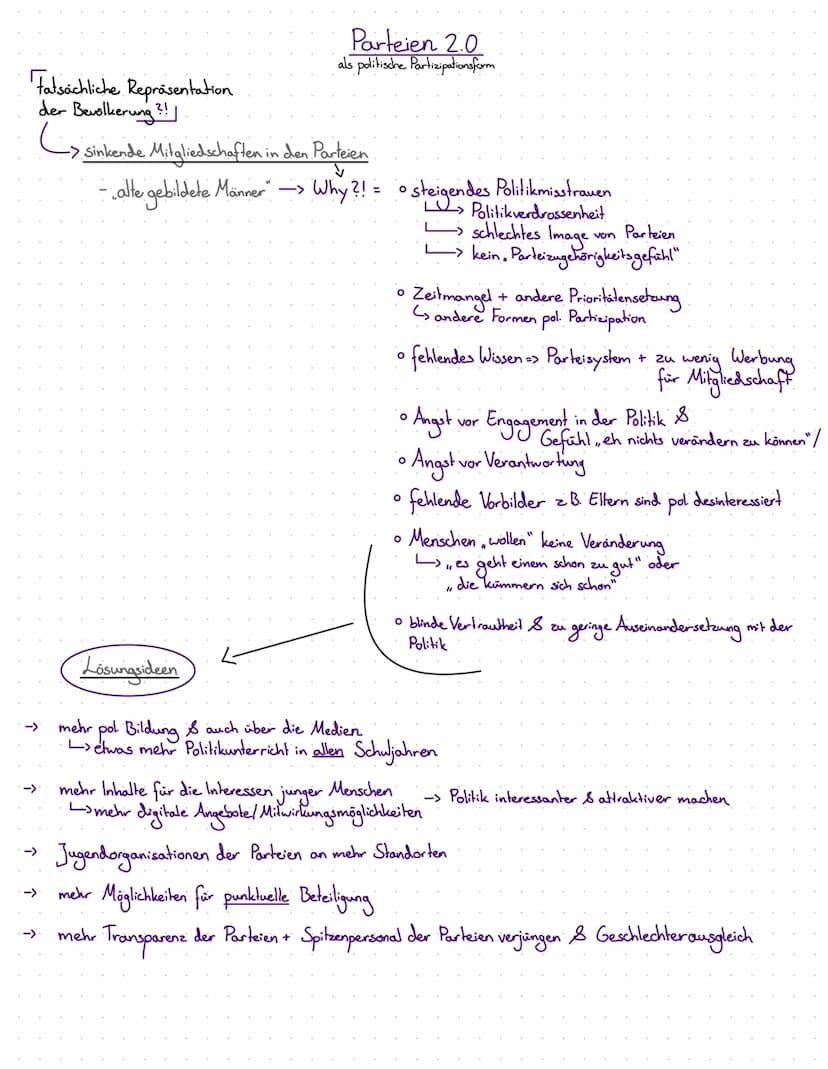 Parteien 2.0
als politische Partizipationsform
tatsächliche Repräsentation
der Bevölkerung?!
→ sinkende Mitgliedschaften in den Parteien
- „alte gebildete Männer" → Why?! =
∘ steigendes Politikmisstrauen
↳ Politikverdrossenheit
↳ schlechtes Image von Parteien
↳ kein „Parteizugehörigkeitsgefühl"
∘ Zeitmangel + andere Prioritätensetzung
↳ andere Formen pol. Partizipation
∘ fehlendes Wissen => Parteisystem + zu wenig Werbung
für Mitgliedschaft
∘ Angst vor Engagement in der Politik &
Gefühl „eh nichts verändern zu können"/
∘ Angst vor Verantwortung
∘ fehlende Vorbilder z.B. Eltern sind pol desinteressiert
∘ Menschen „wollen" keine Veränderung
↳ „es geht einem schon zu gut" oder
„die kümmern sich schon"
∘ blinde Vertrautheit & zu geringe Auseinandersetzung mit der
Politik
Lösungsideen
→ mehr pol Bildung & auch über die Medien
↳ etwas mehr Politikunterricht in allen Schuljahren
→ mehr Inhalte für die Interessen junger Menschen
↳ mehr digitale Angebote/Mitwirkungsmöglichkeiten
→ Politik interessanter & attraktiver machen
→ Jugendorganisationen der Parteien an mehr Standorten
→ mehr Möglichkeiten für punktuelle Beteiligung
→ mehr Transparenz der Parteien + Spitzenpersonal der Parteien verjüngen & Geschlechterausgleich